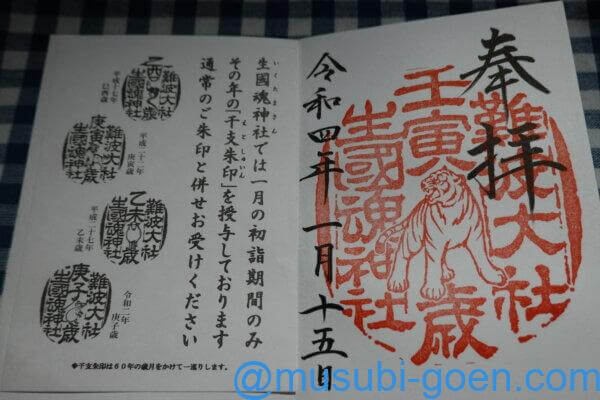 奉拝
難波大社
壬寅歳
生國魂神社
令和四年一月十五日
いくたまさん
生國魂神社では一月の初詣期間のみ
えと しゅいん
その年の「干支朱印」を授与しております
通常のご朱印と併せお受けください
難波大社
乙酉歳
生國魂神社
平成十七年
難波大社
庚寅歳
生國魂神社
平成二十二年
庚寅歳
難波大社
乙未歳
生國魂神社
平成二十七年
乙未歳
難波大社
庚子歳
生國魂神社
令和二年
庚子歳
◆干支朱印は60年の歳月をかけて一巡りします。
@musubi-goen.com